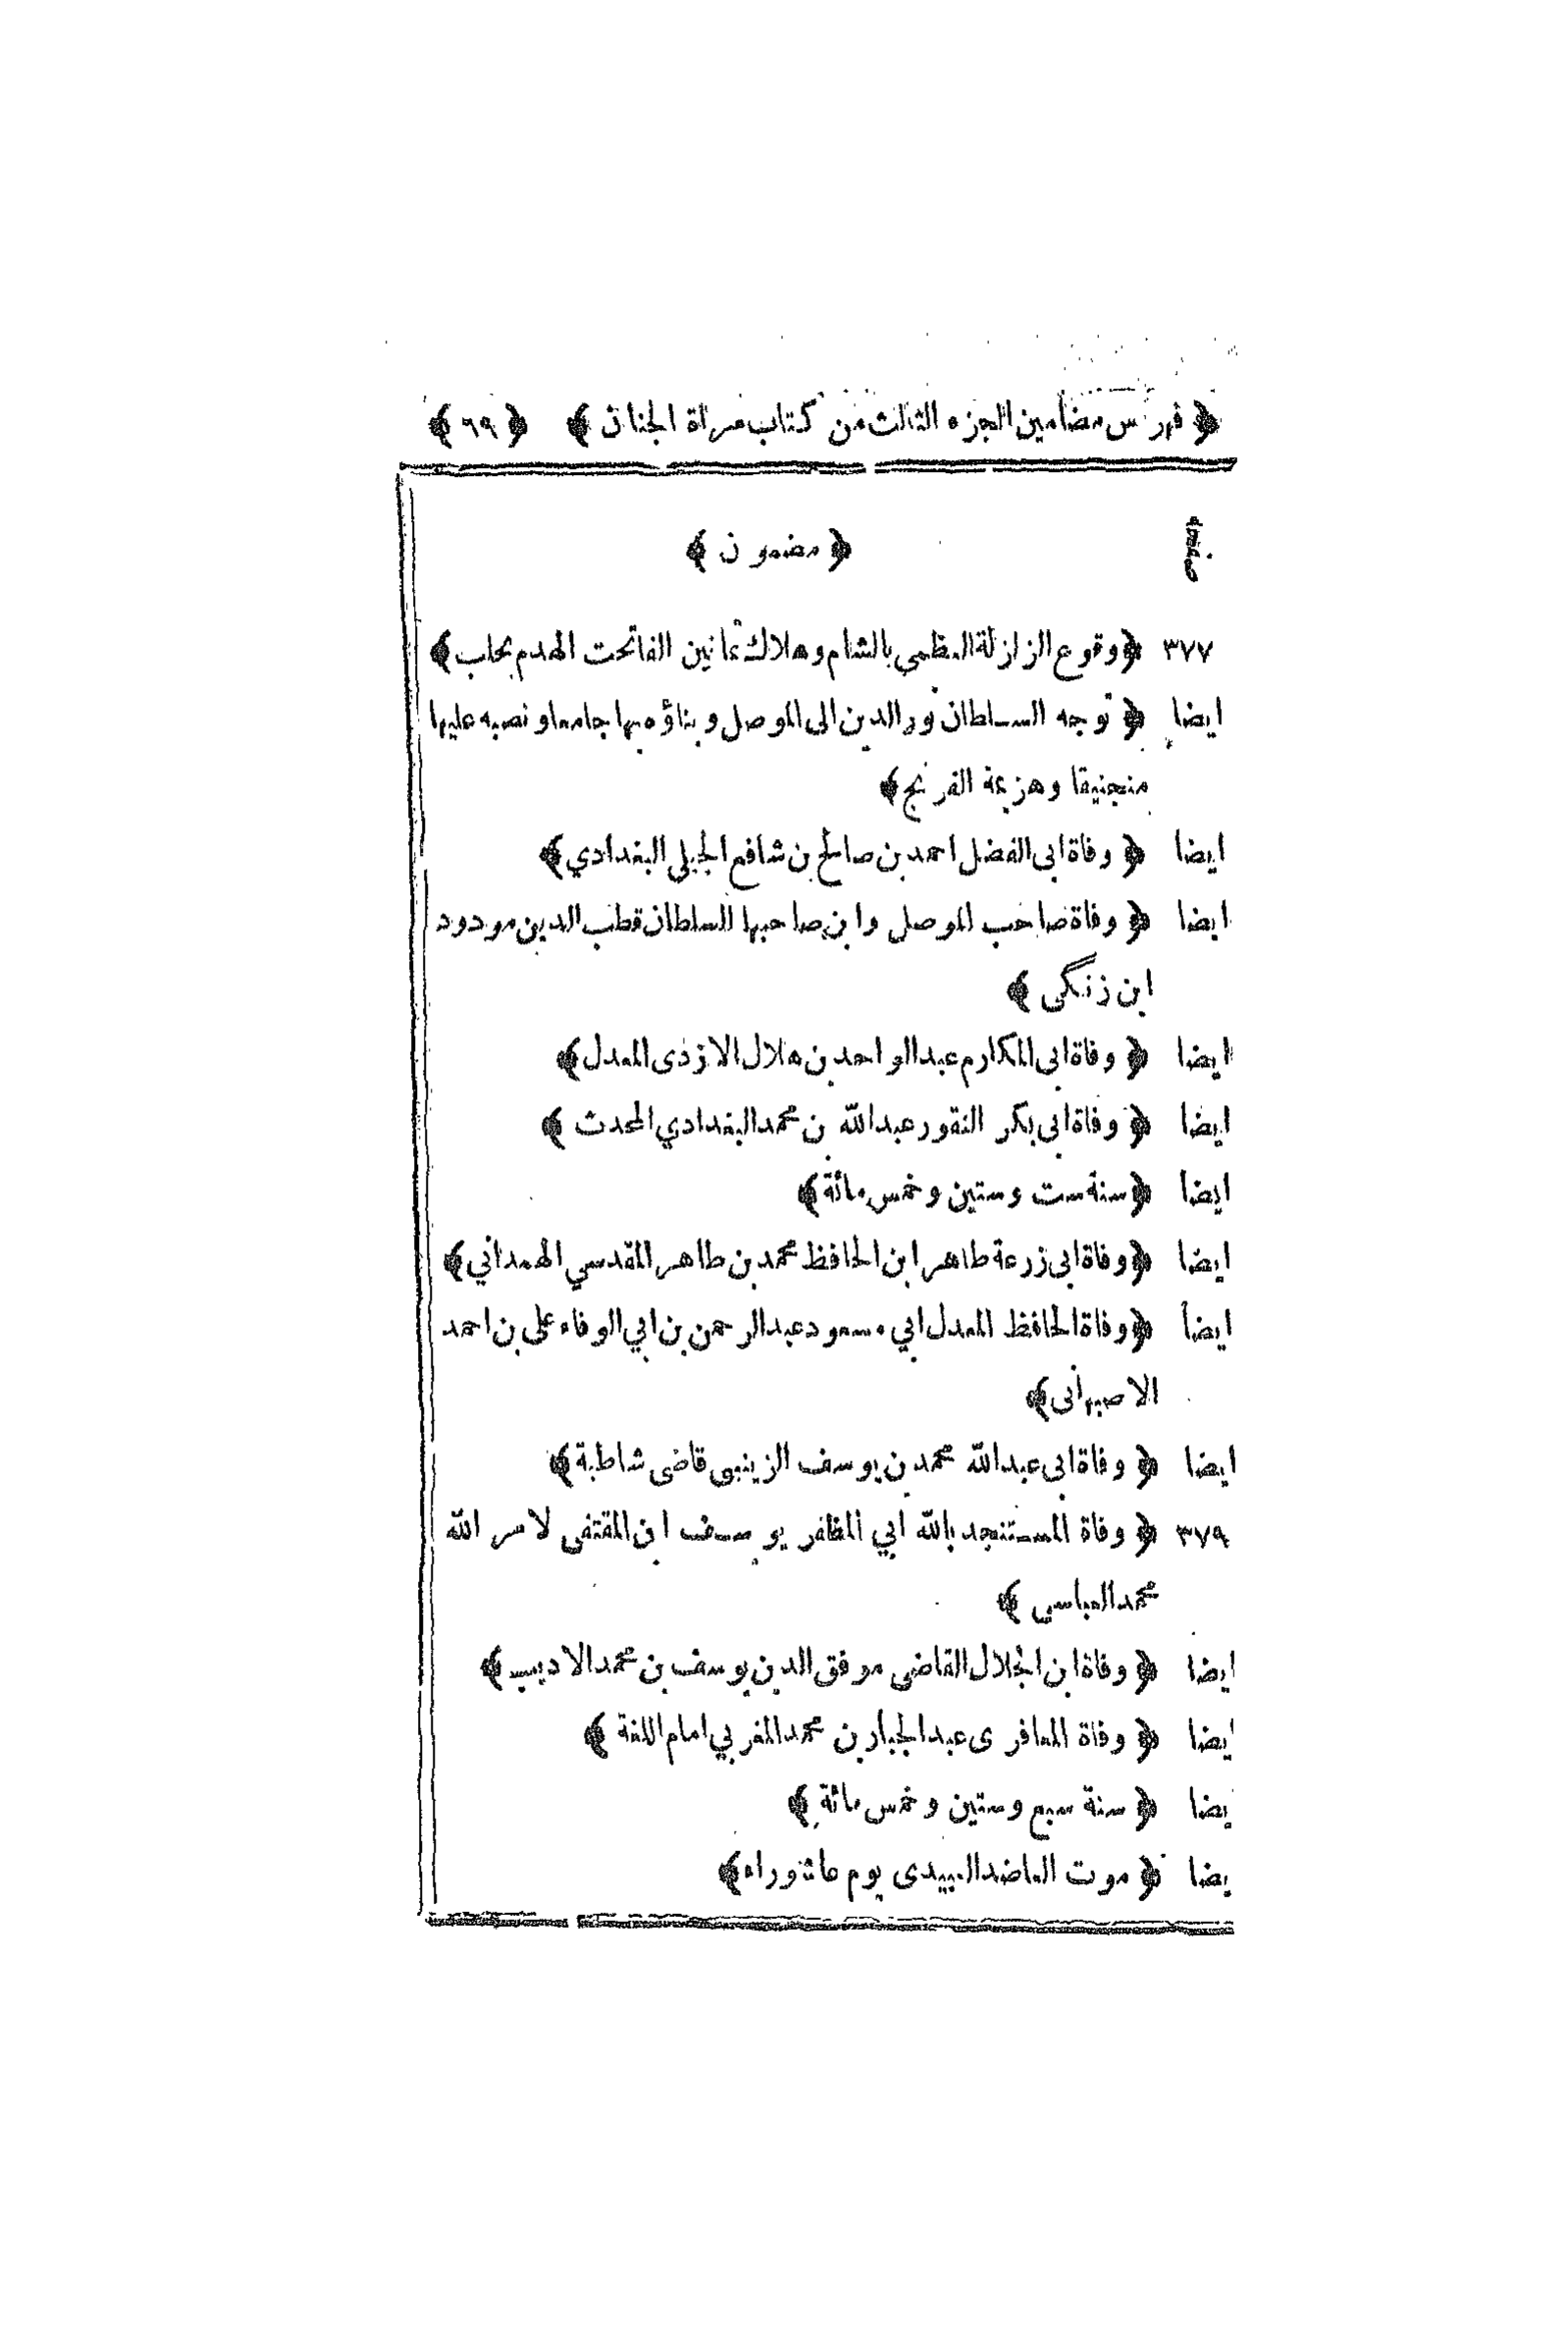 ﴿ فهرس مضامين الجزء الثالث من كتاب مرآة الجنان ﴾ ﴿ ٦٩ ﴾
صفحه ﴿ مضمون ﴾
٣٧٧ ﴿ وقوع الزلزلة العظمى بالشام وهلاك ثمانين الفا تحت الهدم بحلب ﴾
ايضا ﴿ توجه السلطان نور الدين الى الموصل وبناؤه بها جامعا ونصبه عليها
منجنيقا وهزيمة الفرنج ﴾
ايضا ﴿ وفاة ابى الفضل احمد بن صالح بن شافع الجيلى البغدادي ﴾
ايضا ﴿ وفاة صاحب الموصل وابن صاحبها السلطان قطب الدين مودود
ابن زنگى ﴾
ايضا ﴿ وفاة ابى المكارم عبد الواحد بن هلال الازدى المعدل ﴾
ايضا ﴿ وفاة ابى بكر النقور عبد الله بن محمد البغدادي المحدث ﴾
ايضا ﴿ سنة ست وستين وخمس مائة ﴾
ايضا ﴿ وفاة ابى زرعة طاهر ابن الحافظ محمد بن طاهر المقدسي الهمداني ﴾
ايضا ﴿ وفاة الحافظ المعدل ابي مسعود عبد الرحمن بن ابي الوفاء على بن احمد
الاصبهانى ﴾
ايضا ﴿ وفاة ابى عبد الله محمد بن يوسف الزينبى قاضى شاطبة ﴾
٣٧٩ ﴿ وفاة المستنجد بالله ابي المظفر يوسف ابن المقتفى لامر الله
محمد العباسي ﴾
ايضا ﴿ وفاة ابن الجلال القاضى موفق الدين يوسف بن محمد الاديب ﴾
ايضا ﴿ وفاة المعافرى عبد الجبار بن محمد المغربي امام اللغة ﴾
ايضا ﴿ سنة سبع وستين وخمس مائة ﴾
ايضا ﴿ موت العاضد العبيدى يوم عاشوراء ﴾